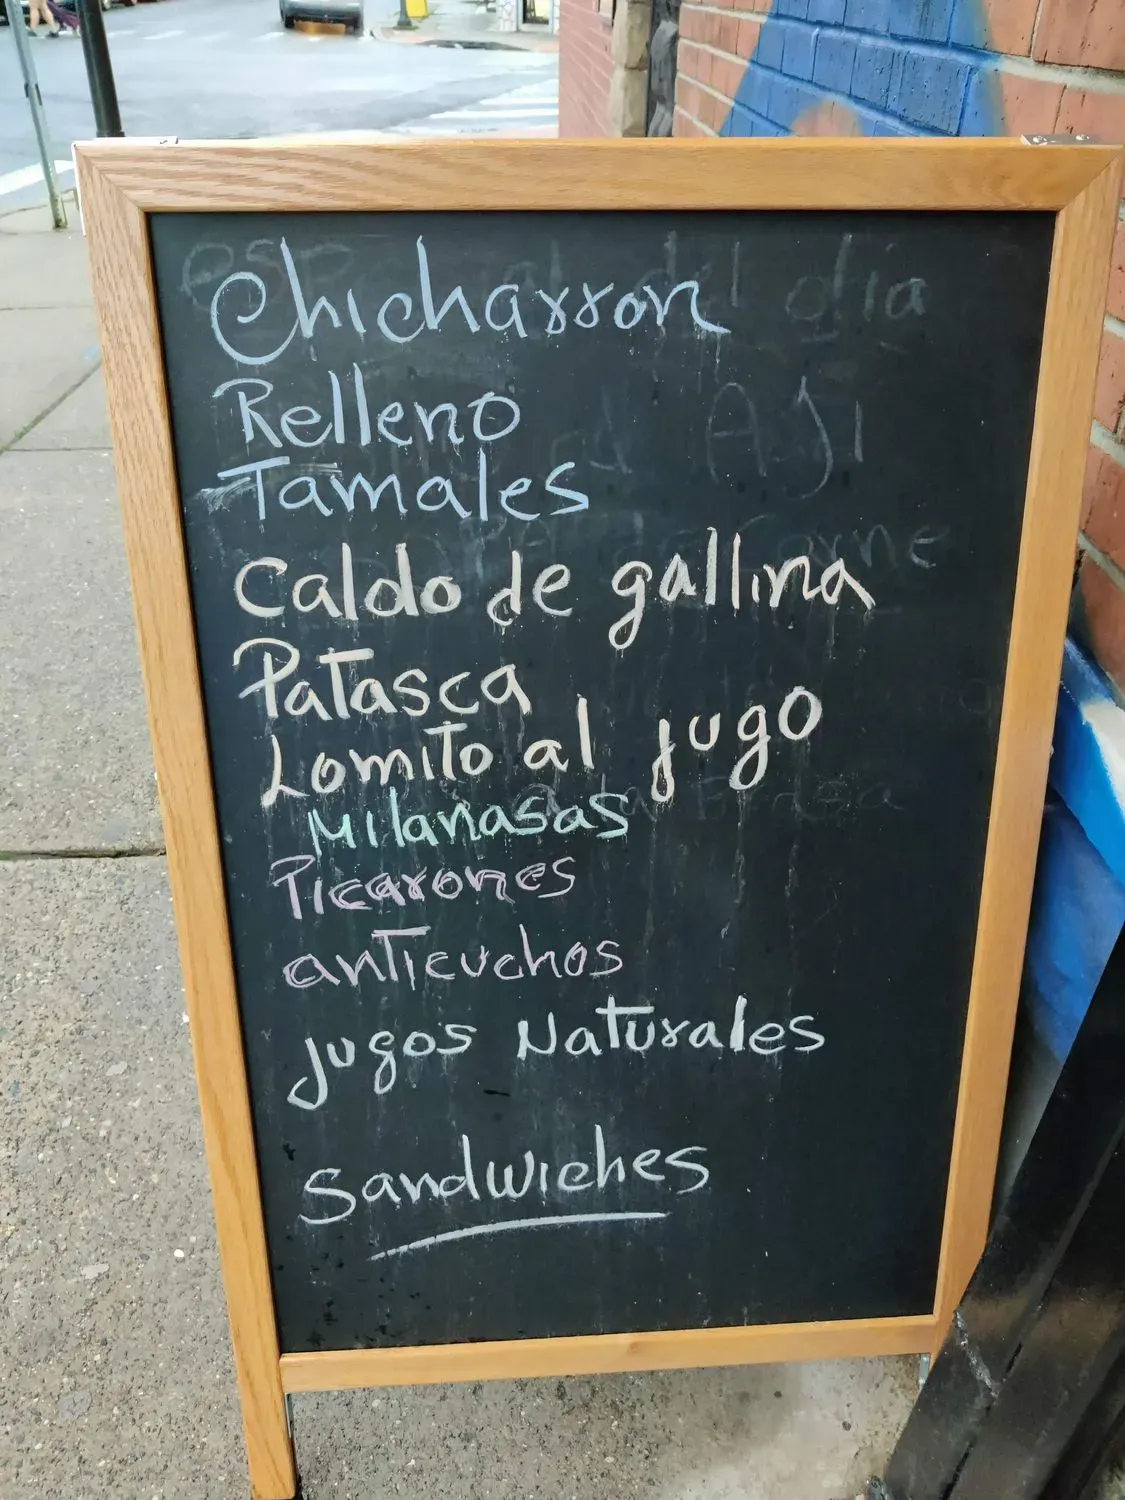 Chicharron
Relleno
Tamales
Caldo de gallina
Patasca
Lomito al jugo
Milanasas
Picarones
anticuchos
Jugos Naturales
Sandwiches